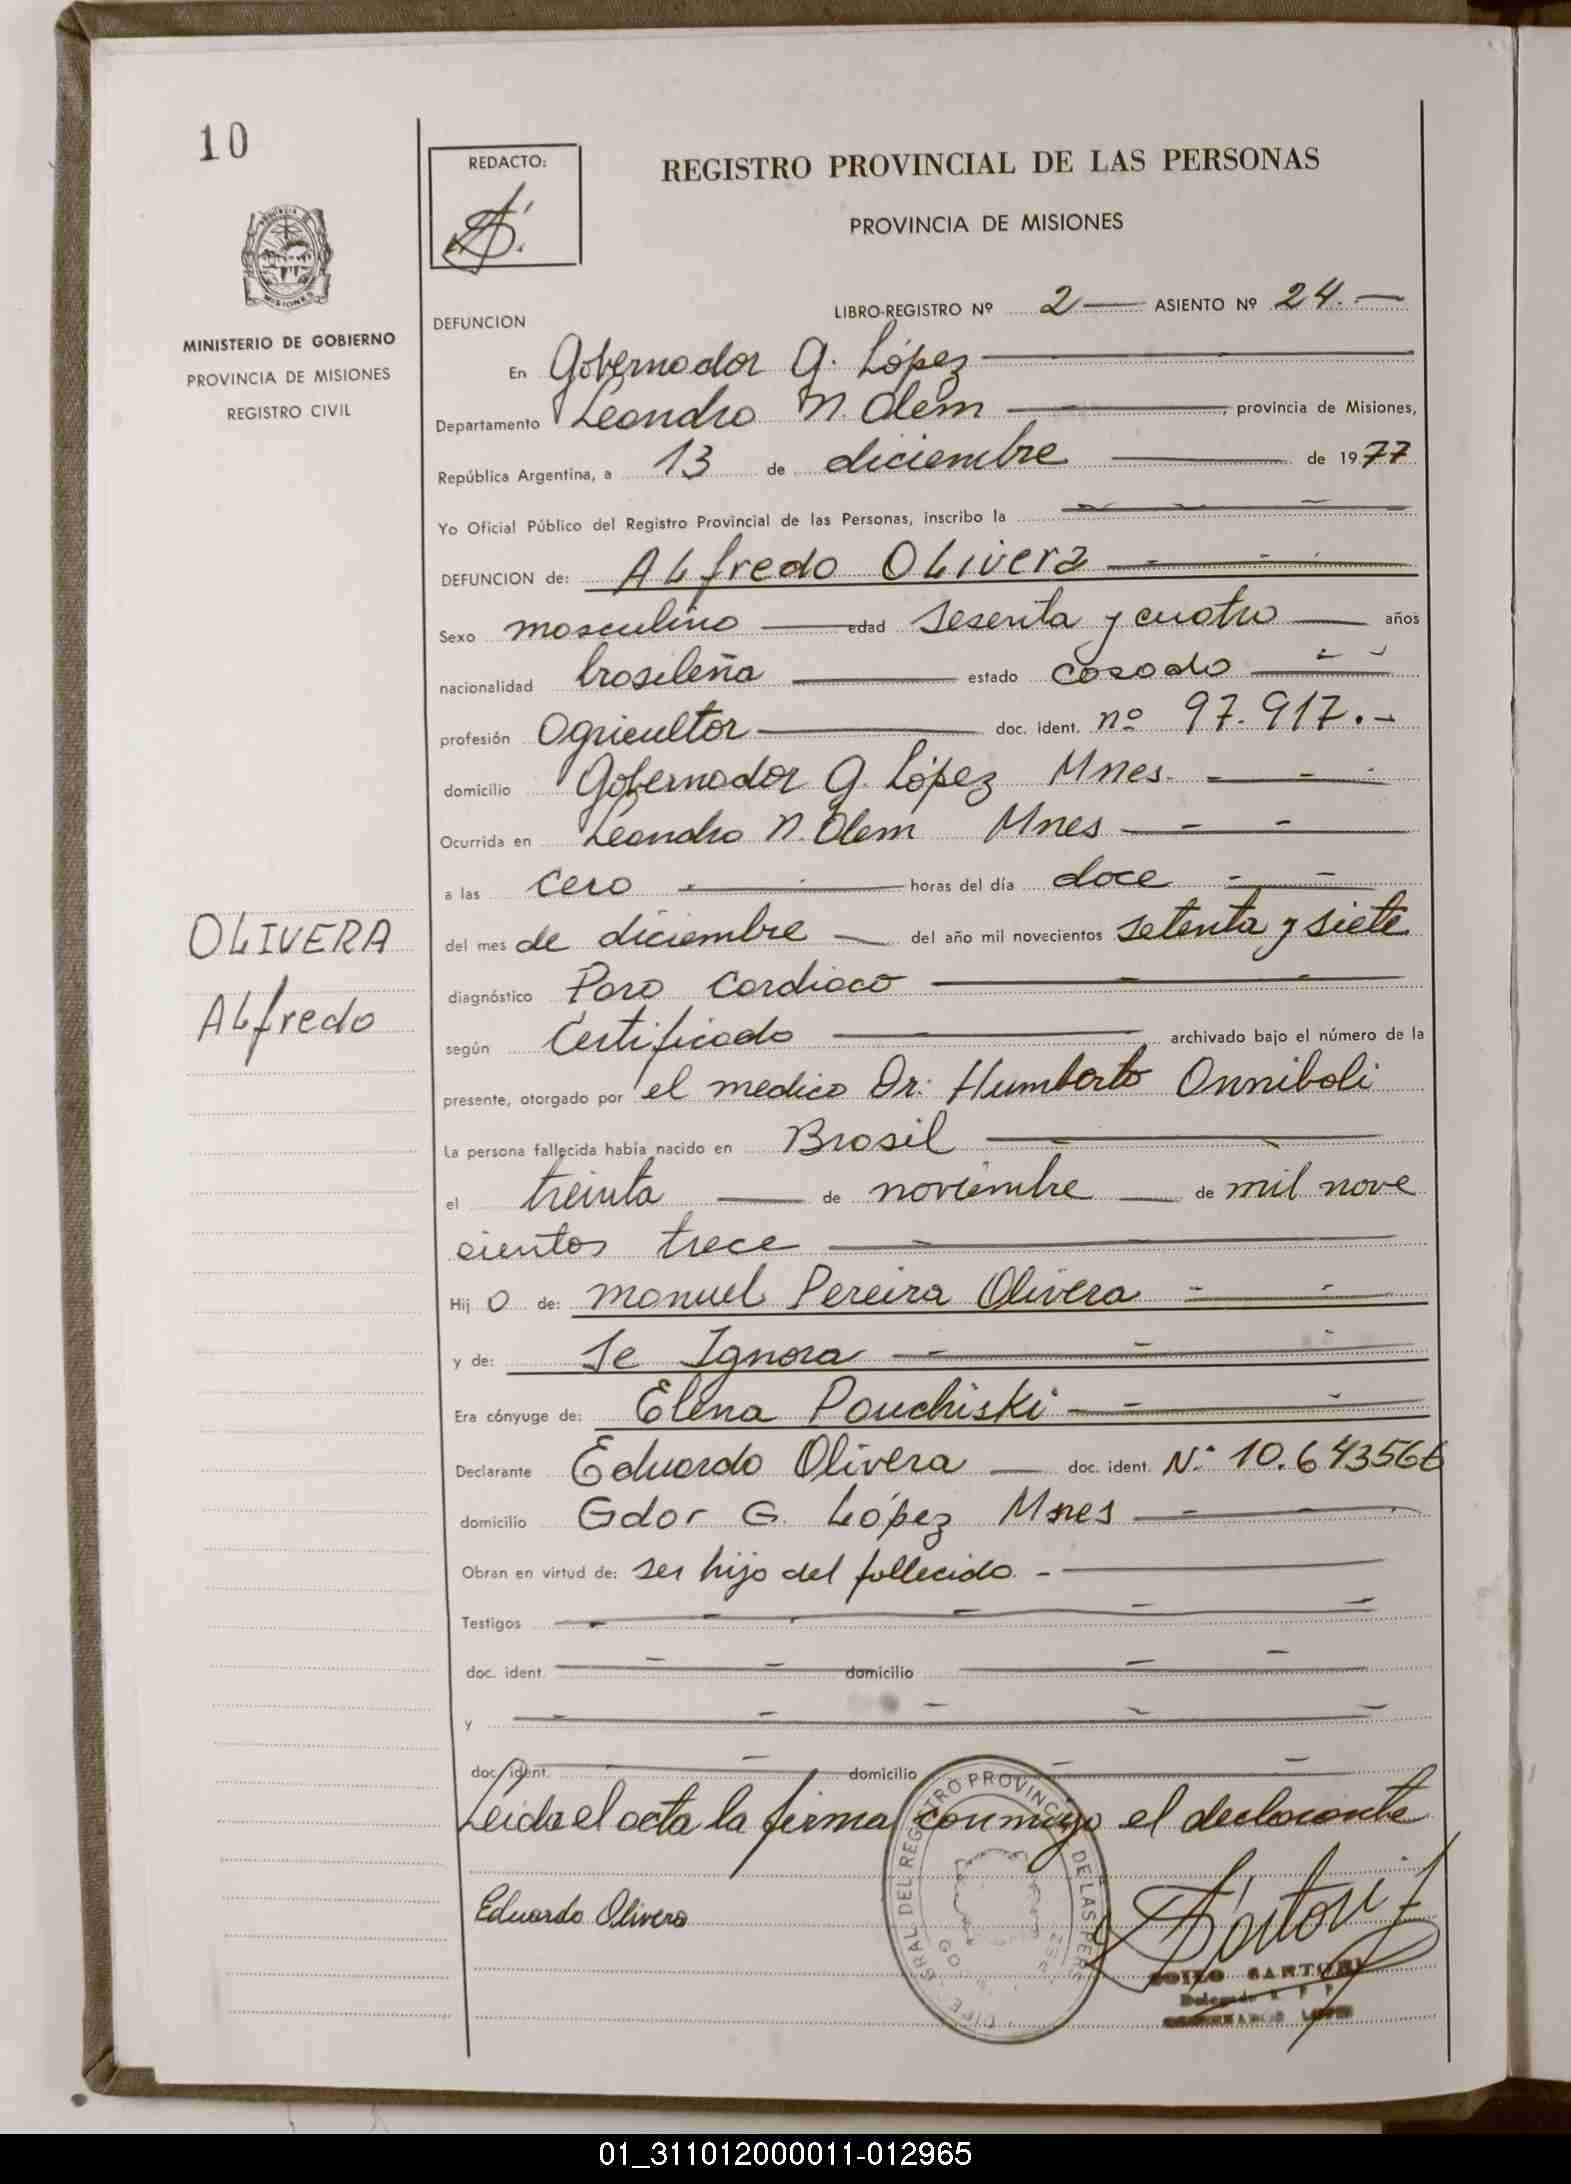 10
REDACTO:
REGISTRO PROVINCIAL DE LAS PERSONAS
PROVINCIA DE MISIONES
MISIONES
MINISTERIO DE GOBIERNO
PROVINCIA DE MISIONES
REGISTRO CIVIL
LIBRO-REGISTRO Nº 2 ASIENTO Nº 24.
DEFUNCION
En Gobernador G. López
Departamento Leandro N. Alem, provincia de Misiones,
República Argentina, a 13 de diciembre de 1977
Yo Oficial Público del Registro Provincial de las Personas, inscribo la
DEFUNCION de: ALfredo OLivera
Sexo masculino edad sesenta y cuatro años
nacionalidad brasileña estado casado
profesión Agricultor doc. ident. nº 97.917.-
domicilio Gobernador G. López Mnes.
Ocurrida en Leandro N. Alem Mnes
a las cero horas del día doce
OLIVERA
ALfredo
del mes de diciembre del año mil novecientos setenta y siete
diagnóstico Paro Cardiaco
según Certificado archivado bajo el número de la
presente, otorgado por el medico Dr: Humberto Anniboli
La persona fallecida había nacido en Brasil
el treinta de noviembre de mil nove
cientos trece
Hij o de: Manuel Pereira Olivera
y de: Se Ignora
Era cónyuge de: Elena Pauchiski
Declarante Eduardo Olivera doc. ident. Nº 10.643566
domicilio Gdor G. López Mnes
Obran en virtud de: ser hijo del fallecido.-
Testigos
doc. ident. domicilio
y
doc. ident. domicilio
Leida el acta la firma conmigo el declarante
Eduardo Olivera
GRAL DEL REGISTRO PROVINCIAL DE LAS PERS
Sartori
SARTORI
Delegado